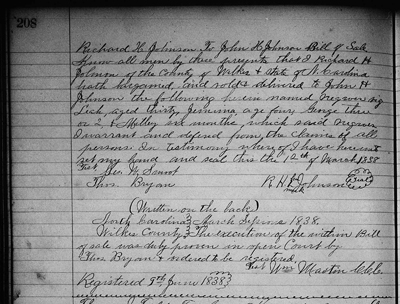 208
Richard H. Johnson To John H Johnson Bill of Sale
Know all men by these presents that I Richard H
Johnson of the County of Wilkes & State of N. Carolina
hath bargained and sold & delivered to John H
Johnson the following persons named Negroes viz
aged thirty, Jemima age four, George three
or 2, & Milley six months which said Negroes
I warrant and defend from the claims of all
persons In testimony whereof I have hereunto
set my hand and seal this the 12th of March 1838
Test
Thos. Bryan R. H. Johnson (Seal)
mark
(Written on the back)
North Carolina } March Sessions 1838.
Wilkes County } The execution of the within Bill
of sale was duly proven in open Court by
Thos Bryan & ordered to be registered.
Test Wm Mastin C.C.C.
Registered 8th June 1838